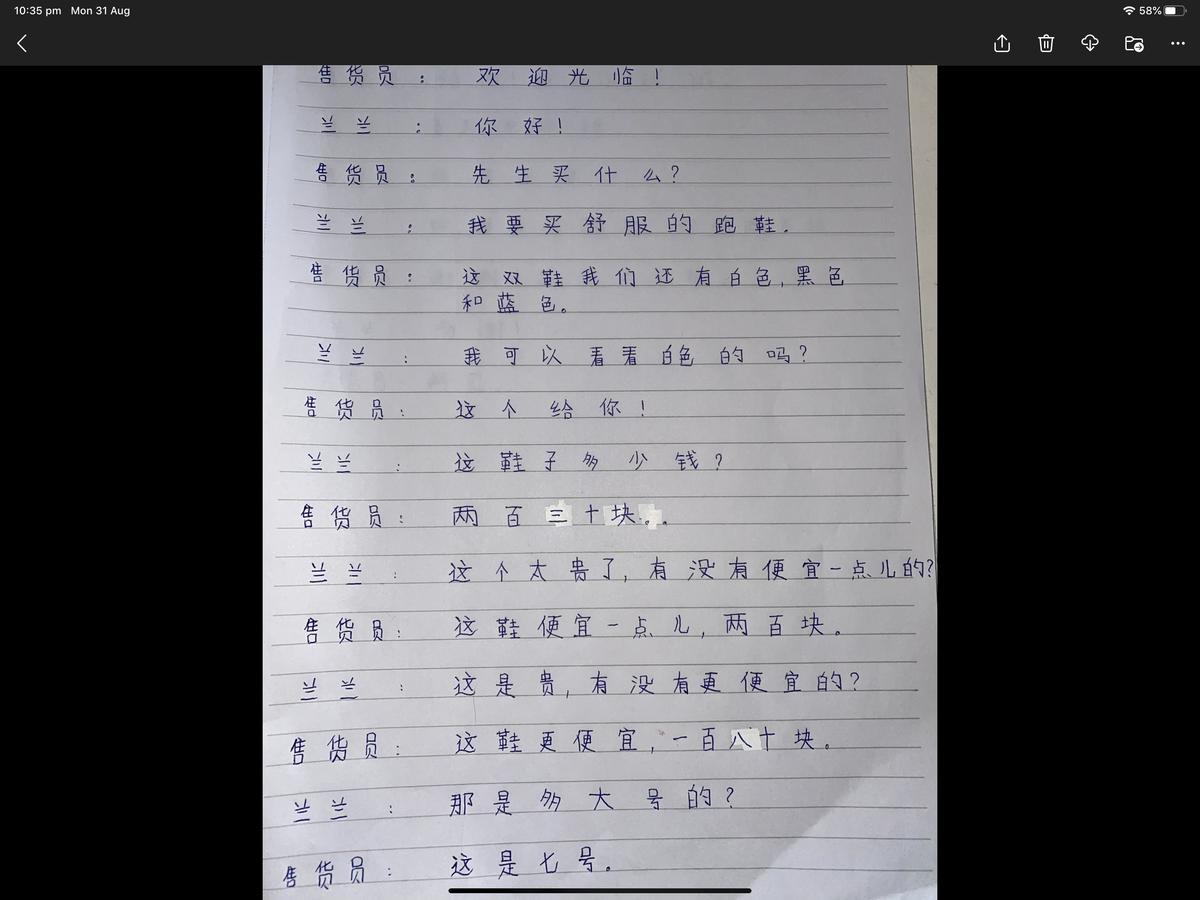 10:35 pm Mon 31 Aug 58%
售货员: 欢迎光临!
兰兰: 你好!
售货员: 先生买什么?
兰兰: 我要买舒服的跑鞋.
售货员: 这双鞋我们还有白色,黑色
和蓝色。
兰兰: 我可以看看白色的吗?
售货员: 这个给你!
兰兰: 这鞋子多少钱?
售货员: 两百三十块。
兰兰: 这个太贵了,有没有便宜一点儿的?
售货员: 这鞋便宜一点儿,两百块。
兰兰: 这是贵,有没有更便宜的?
售货员: 这鞋更便宜,一百八十块。
兰兰: 那是多大号的?
售货员: 这是七号。